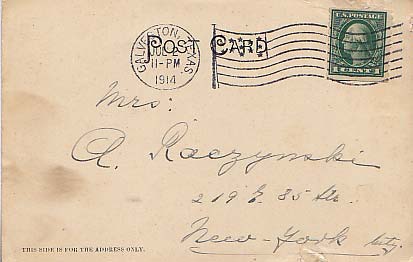 POST CARD
GALVESTON, TEXAS
JUL
11-PM
1914
U.S. POSTAGE
1 CENT 1
Mrs:
A. Raczynski
219 E. 85 Str.
New-York City.
THIS SIDE IS FOR THE ADDRESS ONLY.